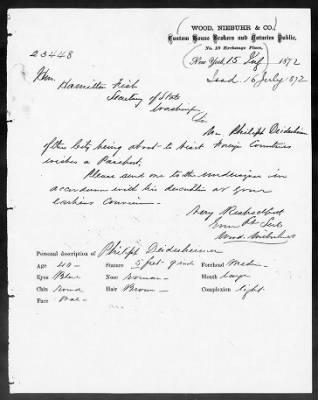 WOOD, NIEBUHR & CO.
Custom House Brokers and Notaries Public,
No. 18 Exchange Place,
23448
New York, 15 July 1872
Issd 16 July 1872
Hon. Hamilton Fish
Secretary of State
Washington
Sir
Mr Philipp Deidesheimer
of this City being about to visit Foreign Countries
wishes a Passport.
Please send one to the undersigned in
accordance with his description at your
earliest Convenience.
Very Respectfully
Your Ob Svts
Wood Niebuhr & Co
Personal description of Philipp Deidesheimer
Age 40 Stature 5 feet 9 inch Forehead Med
Eyes Blue Nose roman Mouth large
Chin round Hair Brown Complexion light
Face oval